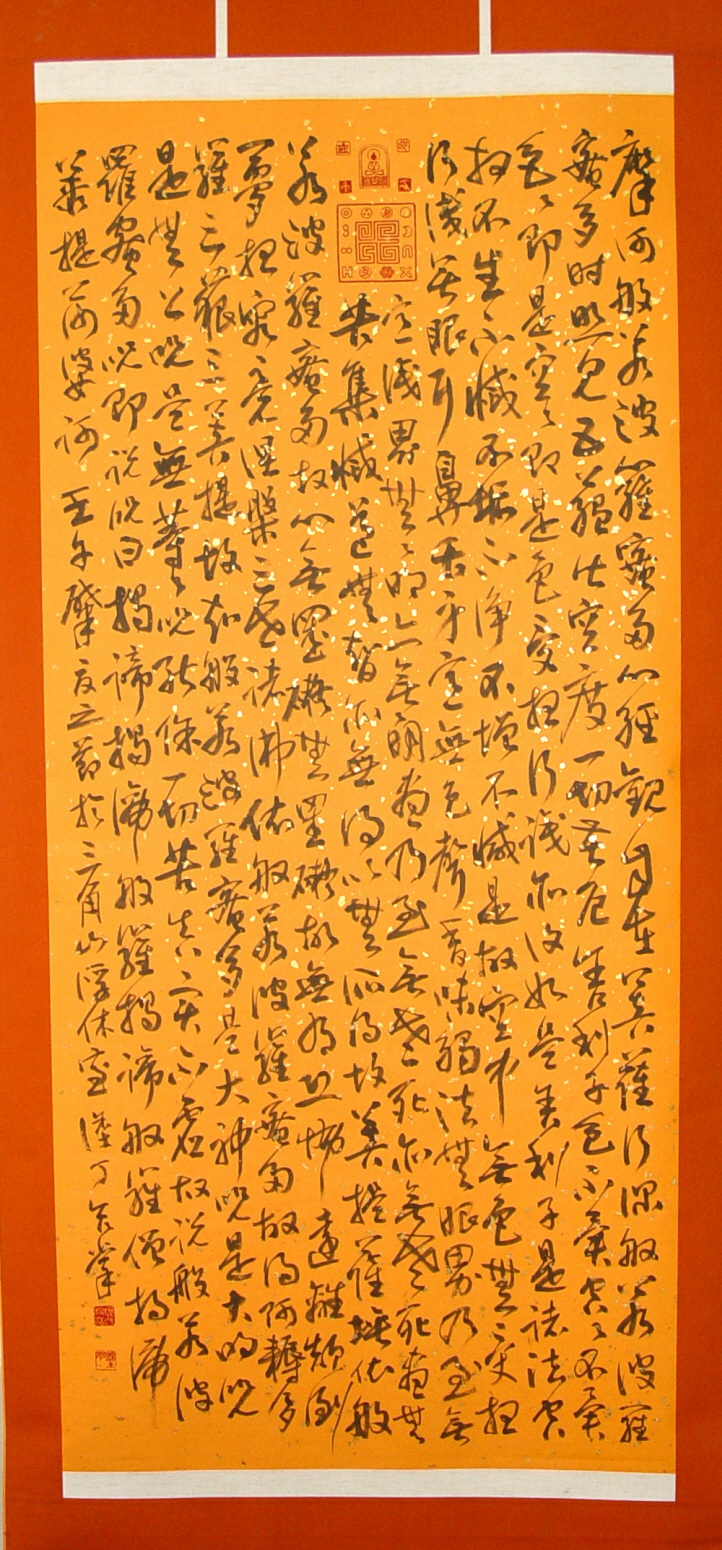 摩訶般若波羅蜜多心經觀自在菩薩行深般若波羅
蜜多時照見五蘊皆空度一切苦厄舍利子色不異空空不異
色色即是空空即是色受想行識亦復如是舍利子是諸法空
相不生不滅不垢不淨不增不減是故空中無色無受想
行識無眼耳鼻舌身意無色聲香味觸法無眼界乃至無
意識界無無明亦無無明盡乃至無老死亦無老死盡無
苦集滅道無智亦無得以無所得故菩提薩埵依般
若波羅蜜多故心無罣礙無罣礙故無有恐怖遠離顛倒
夢想究竟涅槃三世諸佛依般若波羅蜜多故得阿耨多
羅三藐三菩提故知般若波羅蜜多是大神呪是大明呪
是無上呪是無等等呪能除一切苦真實不虛故說般若波
羅蜜多呪即說呪曰揭諦揭諦般羅揭諦般羅僧揭諦
菩提莎婆訶 壬午肇夏之節於三角山浮休室 合掌